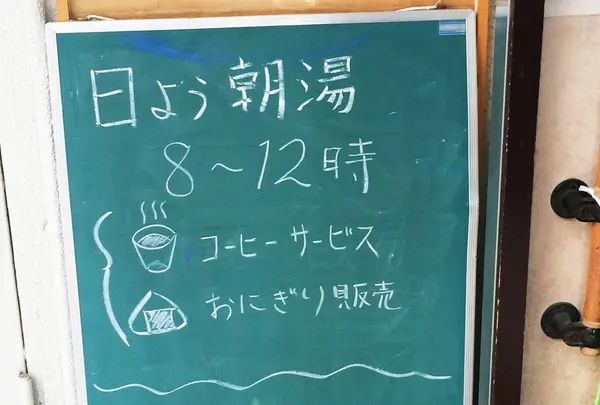 日よう朝湯
8～12時
コーヒーサービス
おにぎり販売